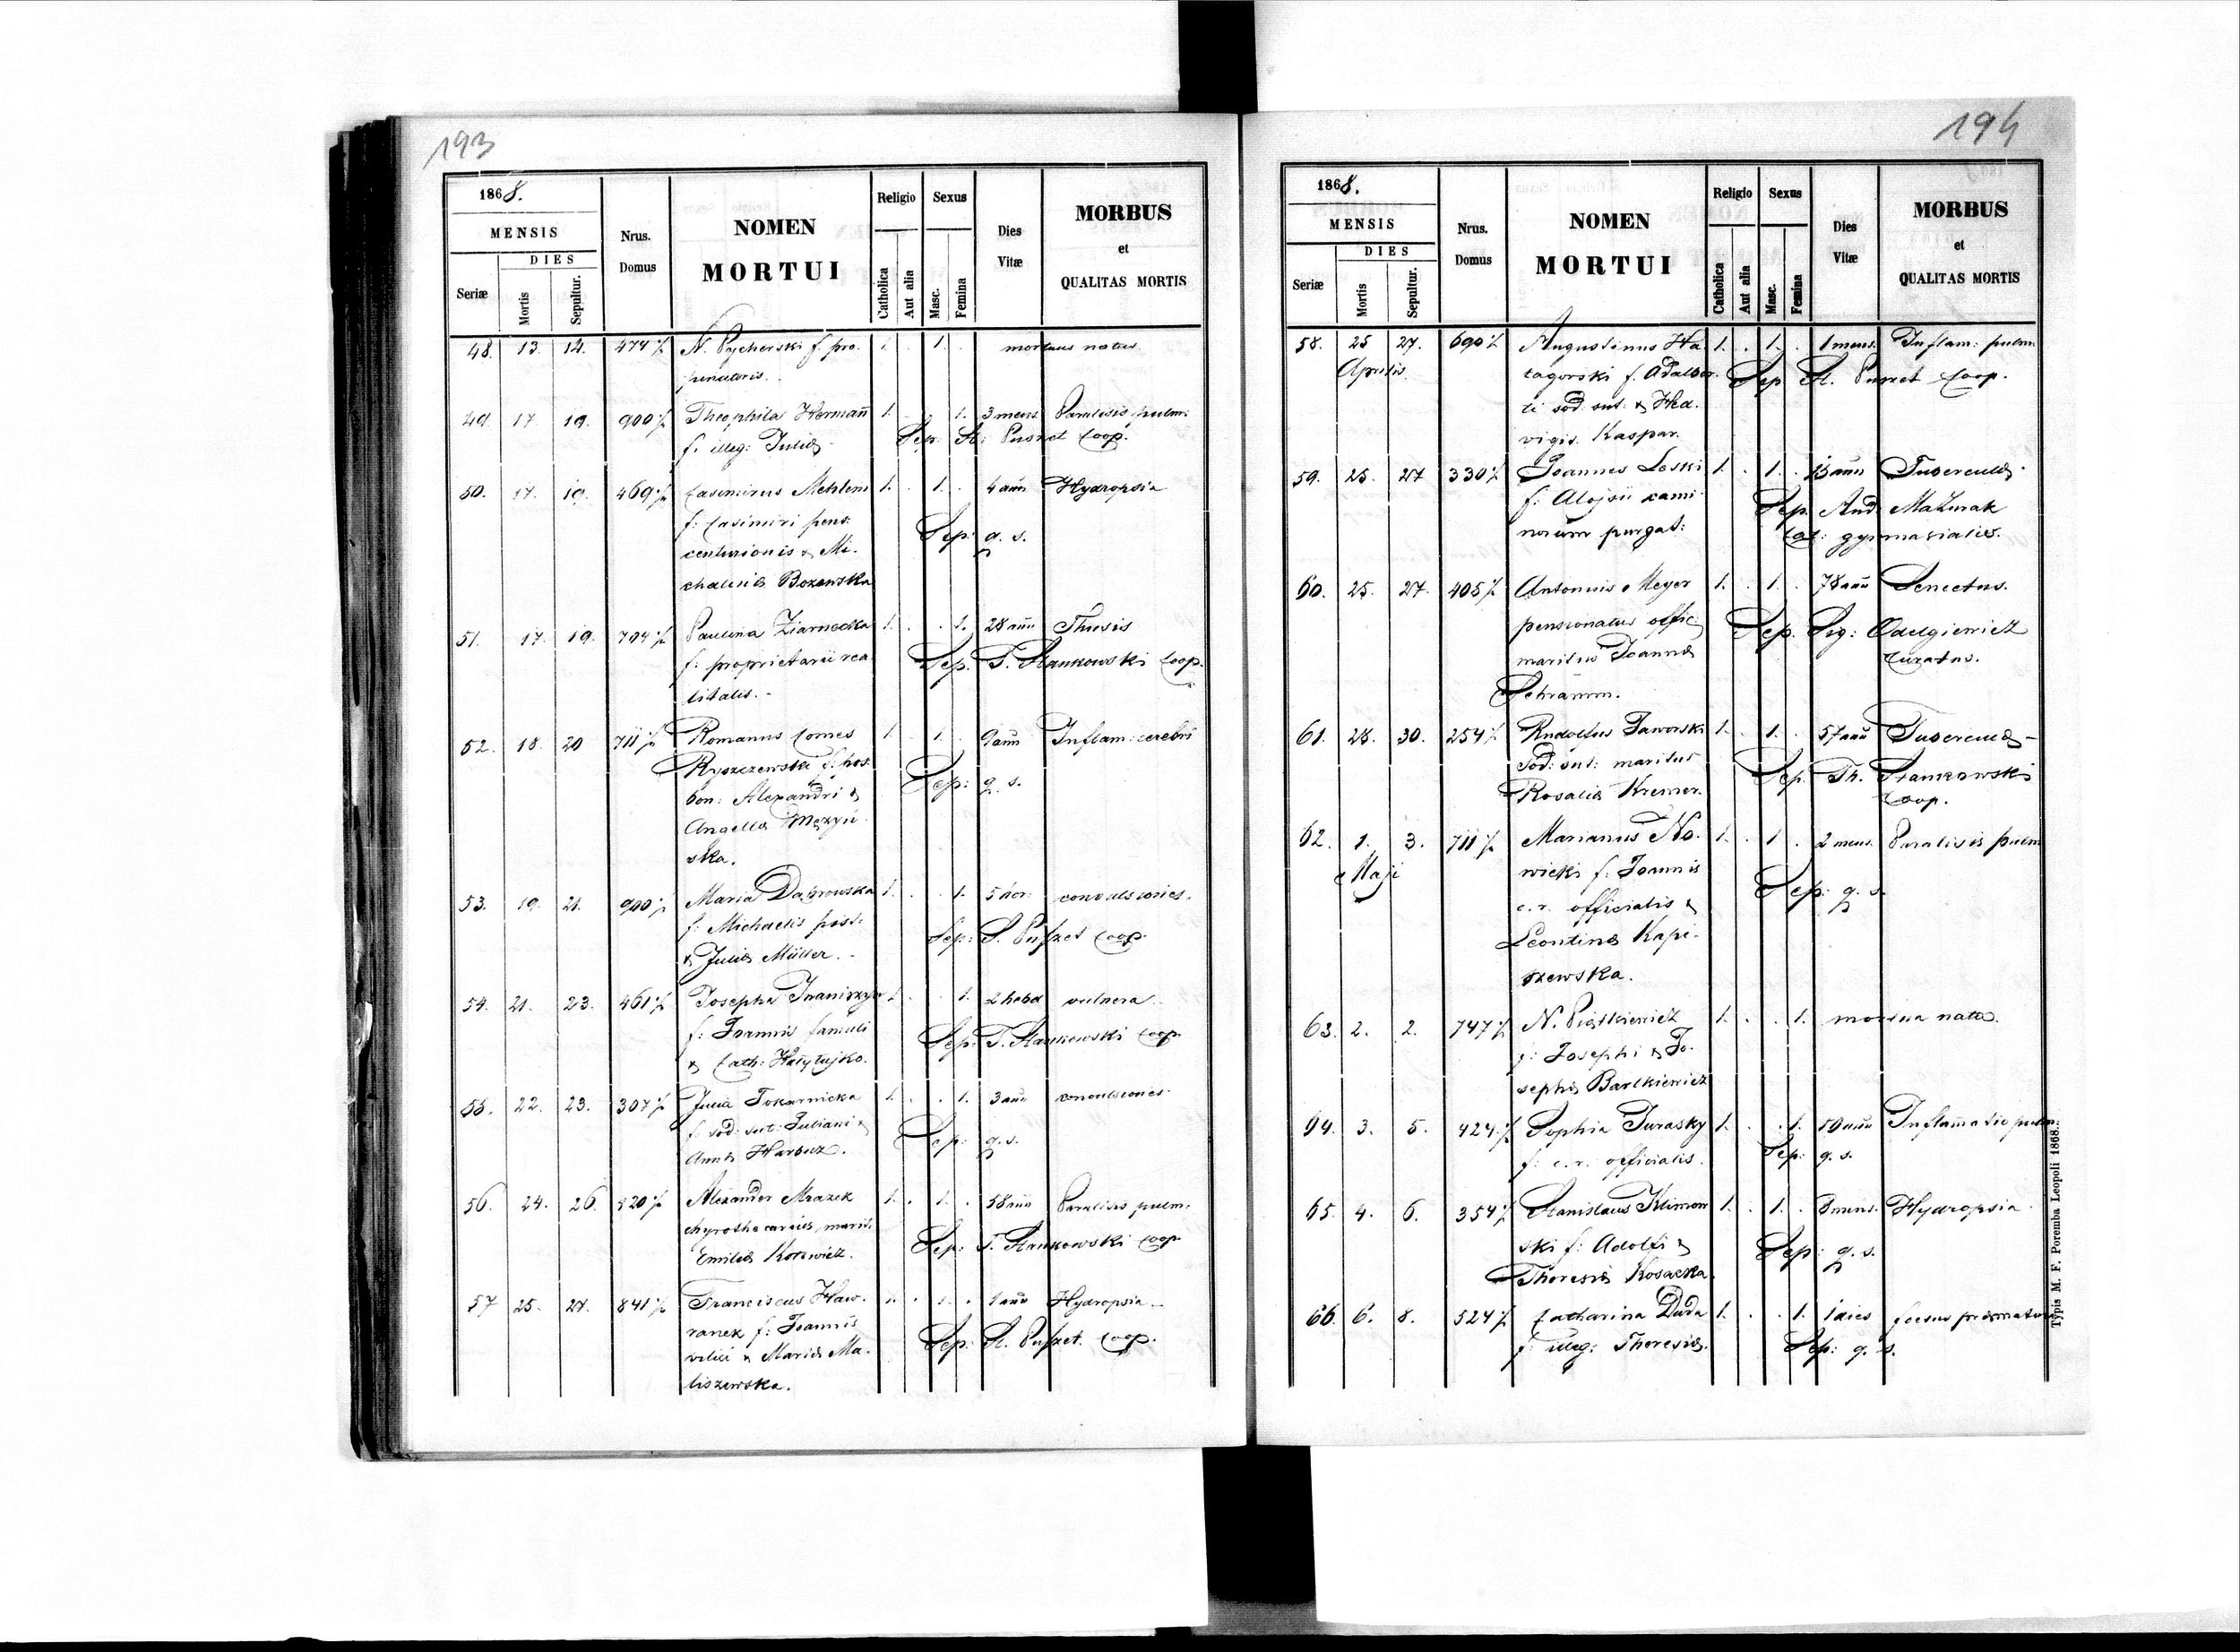 193
1868.
MENSIS
DIES
Seriæ
Mortis
Sepultur.
Nrus. Domus
NOMEN
MORTUI
Religio
Catholica
Aut alia
Sexus
Masc.
Femina
Dies Vitæ
MORBUS
et
QUALITAS MORTIS
48. 13. 14. 474 N. Pycherski f. pro- 1. . 1. . mortuus natus
pinatoris.
49. 17. 19. 900 Theophila Hermañ 1. . . 1. 3 mens Paralisis pulm:
f. illeg: Juliæ Sep. St: Puszet Coop.
50. 17. 19. 469 Casimirus Mehlem 1. . 1. . 4 añn Hydropsia
f: Casimiri pens:
centurionis & Mi- Sep: q. s.
chalinæ Bozewska
51. 17. 19. 704 Paulina Ziarnecka 1. . . 1. 28 añn Thisis
f: proprietarii rea- Sep. T. Stankowski Coop.
litatis.
52. 18. 20 711 Romanus Comes 1. . 1. . 9 añn Inflam: cerebri
Ryszczewski f: pos:
bon: Alexandri & Sep: q. s.
Angella
ska.
53. 19. 21. 900 Maria Dabrowska 1. . . 1. 5 hor. convulsiones.
f: Michaelis post:
& Juliæ Müller. Sep: S. Puszet Coop.
54. 21. 23. 461 Josepha 1. . . 1. 2 hebd vulnera
f: Joannis famuli
& Cath: Sep: T. Stankowski Coop.
55. 22. 23. 307 Julia Tokarnicka 1. . . 1. 3 añn convulsiones
f: sod: sut: Juliani &
Annæ Harbuz. Sep: q. s.
56. 24. 26. 520 Alexander Mrazek 1. . 1. . 58 añn Paralisis pulm:
marit:
Emiliæ Kotowicz. Sep: T. Stankowski Coop
57 25. 27. 841 Franciscus Haw- 1. . 1. . 1 añn Hydropsia
ranek f: Joannis
& Mariæ Ma- Sep: St. Puszet. Coop.
liszewska.
194
1868.
MENSIS
DIES
Seriæ
Mortis
Sepultur.
Nrus. Domus
NOMEN
MORTUI
Religio
Catholica
Aut alia
Sexus
Masc.
Femina
Dies Vitæ
MORBUS
et
QUALITAS MORTIS
58. 25 27. 690 Augustinus Ha- 1. . 1. . 1 mens. Inflam: pulm.
Aprilis. tagorski f. Adalber- Sep St. Puszet Coop.
ti sod. sut. & Hed-
vigis. Kaspar.
59. 25. 27 330 Joannes Leski 1. . 1. . añn Tuberculæ.
f: Alojsii cami- Sep. And Mazurak
norum purgat: Cat: gymnasialis.
60. 25. 27. 405 Antonius Meyer 1. . 1. . 78 añn Senectus.
pensionatus offic: Sep. Sig: Odelgiewicz
maritus Joannæ Curatus.
Schramm.
61. 28. 30. 254 Rudolfus Jaworski 1. . 1. . 57 añn Tuberculæ
Sod: sut: maritus Sep. Th. Stankowski
Rosaliæ Kremer. Coop.
62. 1. 3. 711 Marianus No- 1. . 1 . 2 mens. Paralisis pulm
Maji wicki f: Joannis Sep: q. s.
c. r. officialis &
Leontinæ Kapi-
szewska.
63. 2. 2. 747 N. Piątkiewicz 1. . . 1. mortua nata.
f: Josephi & Jo-
sephæ Bartkiewicz
64. 3. 5. 424 Sophia Turasky 1. . . 1. 50 añn Inflam̃atio pulm
f: c. r. officialis. Sep: q. s.
65. 4. 6. 354 Stanislaus Klimon- 1. . 1. . 8 mens. Hydropsia
ski f: Adolfi & Sep: q. s.
Theresiæ Kosacka
66. 6. 8. 524 Catharina Duda 1. . . 1. 1 dies foetus præmatur
f: illeg: Theresiæ. Sep: q. s.
Typis M. F. Poremba Leopoli 1868.